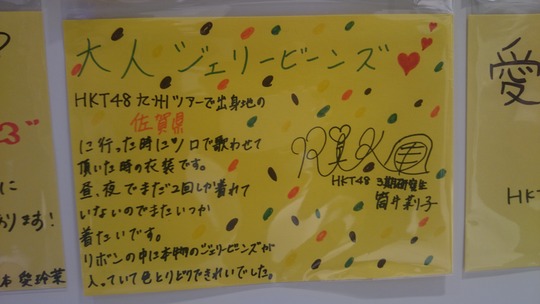 大人ジェリービーンズ
HKT48 九州ツアーで出身地の
佐賀県
に行った時にソロで歌わせて
頂いた時の衣装です。
昼、夜でまだ2回しか着れて
いないのでまたいつか
着たいです。
リボンの中に本物のジェリービーンズが
入っていて色とりどりできれいでした。
HKT48 3期研究生
筒井莉子
3"
に
おります!
愛玲菜
愛
HK